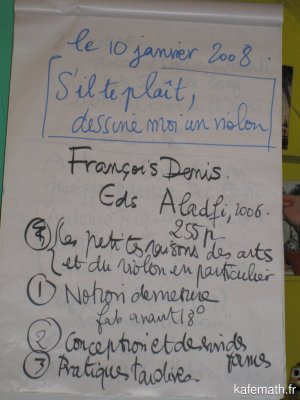 le 10 janvier 2008.
S'il te plaît,
dessine moi un violon
François Denis.
Eds Aladfi, 2006.
255 p
les petites raisons des arts
et du violon en particulier
① Notion de mesure
fab avant 18°
② Conception et dessin des
formes
③ Pratiques tardives
kafemath.fr